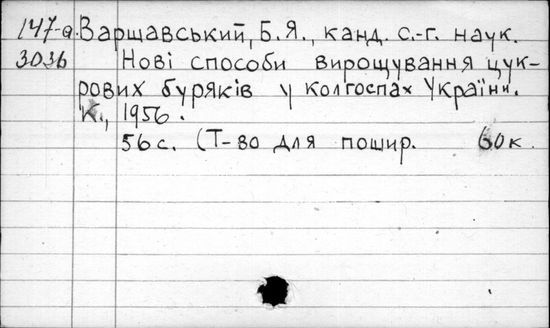 147-а. Варшавський, Б.Я., канд. с.-г. наук.
3036 Нові способи вирощування цук-
рових буряків у колгоспах України.
К., 1956.
56 с. (Т-во для пошир. 60к.